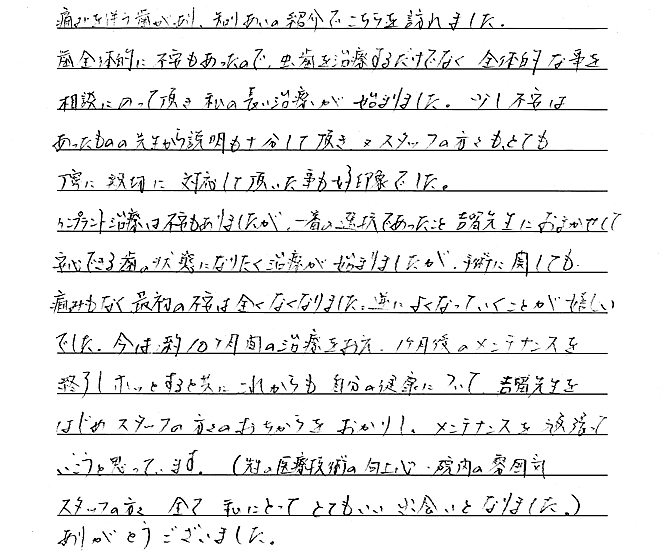 痛みを伴う歯があり、知りあいの紹介でこちらを訪れました。
歯全体的に不安もあったので、虫歯を治療するだけでなく 全体的な事を
相談にのって頂き 私の長い治療が 始まりました。少し不安は
あったものの先生から説明も十分して頂き 又スタッフの方々も、とても
丁寧に 親切に 対応して頂いた事も好印象でした。
インプラント治療は不安もありましたが、一番の選択であったこと 吉留先生におまかせして
安心できる歯の状態になりたく治療が始まりましたが、手術に関しても
痛みもなく最初の不安は全くなくなりました。逆によくなっていくことが嬉しい
でした。今は約10ヶ月間の治療を終え、1ヶ月後のメンテナンスを
終了しホッとすると共に これからも 自分の健康について 吉留先生を
はじめ スタッフの方々のおちからを おかりし、メンテナンスを頑張って
いこうと思っています。（先生の医療技術の向上心・院内の雰囲気
スタッフの方々 全て 私にとって とてもいい 出会いと なりました。）
ありがとうございました。